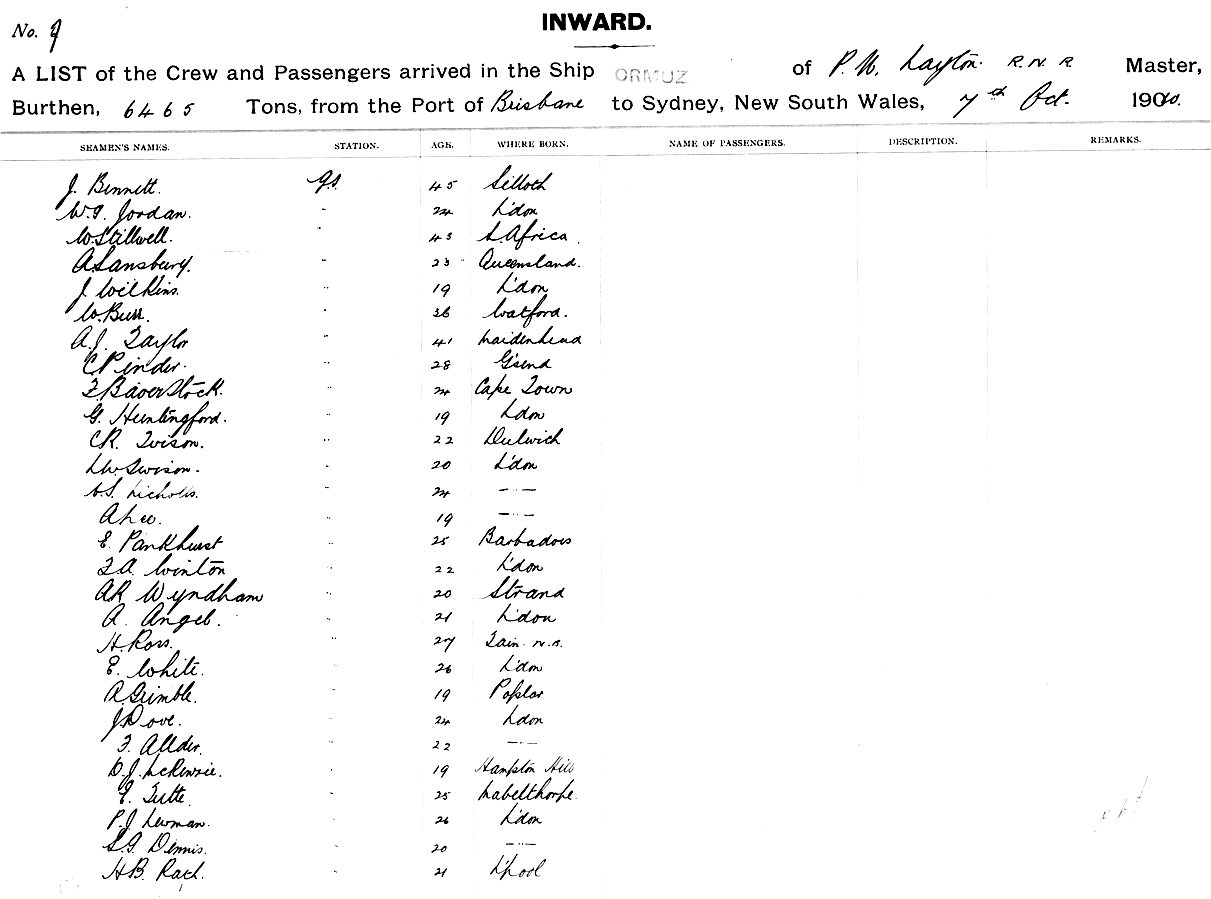 No. 9
INWARD.
A LIST of the Crew and Passengers arrived in the Ship ORMUZ of P. W. Layton. R.N.R Master,
Burthen, 6465 Tons, from the Port of Brisbane to Sydney, New South Wales, 7th Oct. 1900.
SEAMEN'S NAMES. STATION. AGE. WHERE BORN. NAME OF PASSENGERS. DESCRIPTION. REMARKS.
J. Bennett. G.S. 45 Silloth
W.G. Jordan. " 24 L'don
W. Stillwell. " 43 S. Africa.
A Lansbury. " 23 Queensland.
J Wilkins. " 19 L'don
W. Burr. " 36 Watford.
A.J. Taylor " 41 Maidenhead
C Pinder. " 28 G'send
F Baverstock. " 24 Cape Town
G. Huntingford. " 19 L'don
CR. Ivison. " 22 Dulwich
20 L'don
Nicholls. " 24 — " —
A Lee. " 19 — " —
E. Pankhurst " 25 Barbadoes
F.A. Winton " 22 L'don
AR Wyndham " 20 Strand
A. Angel. " 21 L'don
H. Ross. " 27 Tain. N.B.
E. White. " 26 L'don
A Grimble. " 19 Poplar
J Dove. " 24 L'don
F. Allder. " 22 — " —
D.J. McKenzie. " 19 Hampton Hill
E. Tutte " 25 Mabelthorpe.
P.J. Newman. " 26 L'don
S.G. Dennis. " 20 — " —
H.B. " 21 L'pool